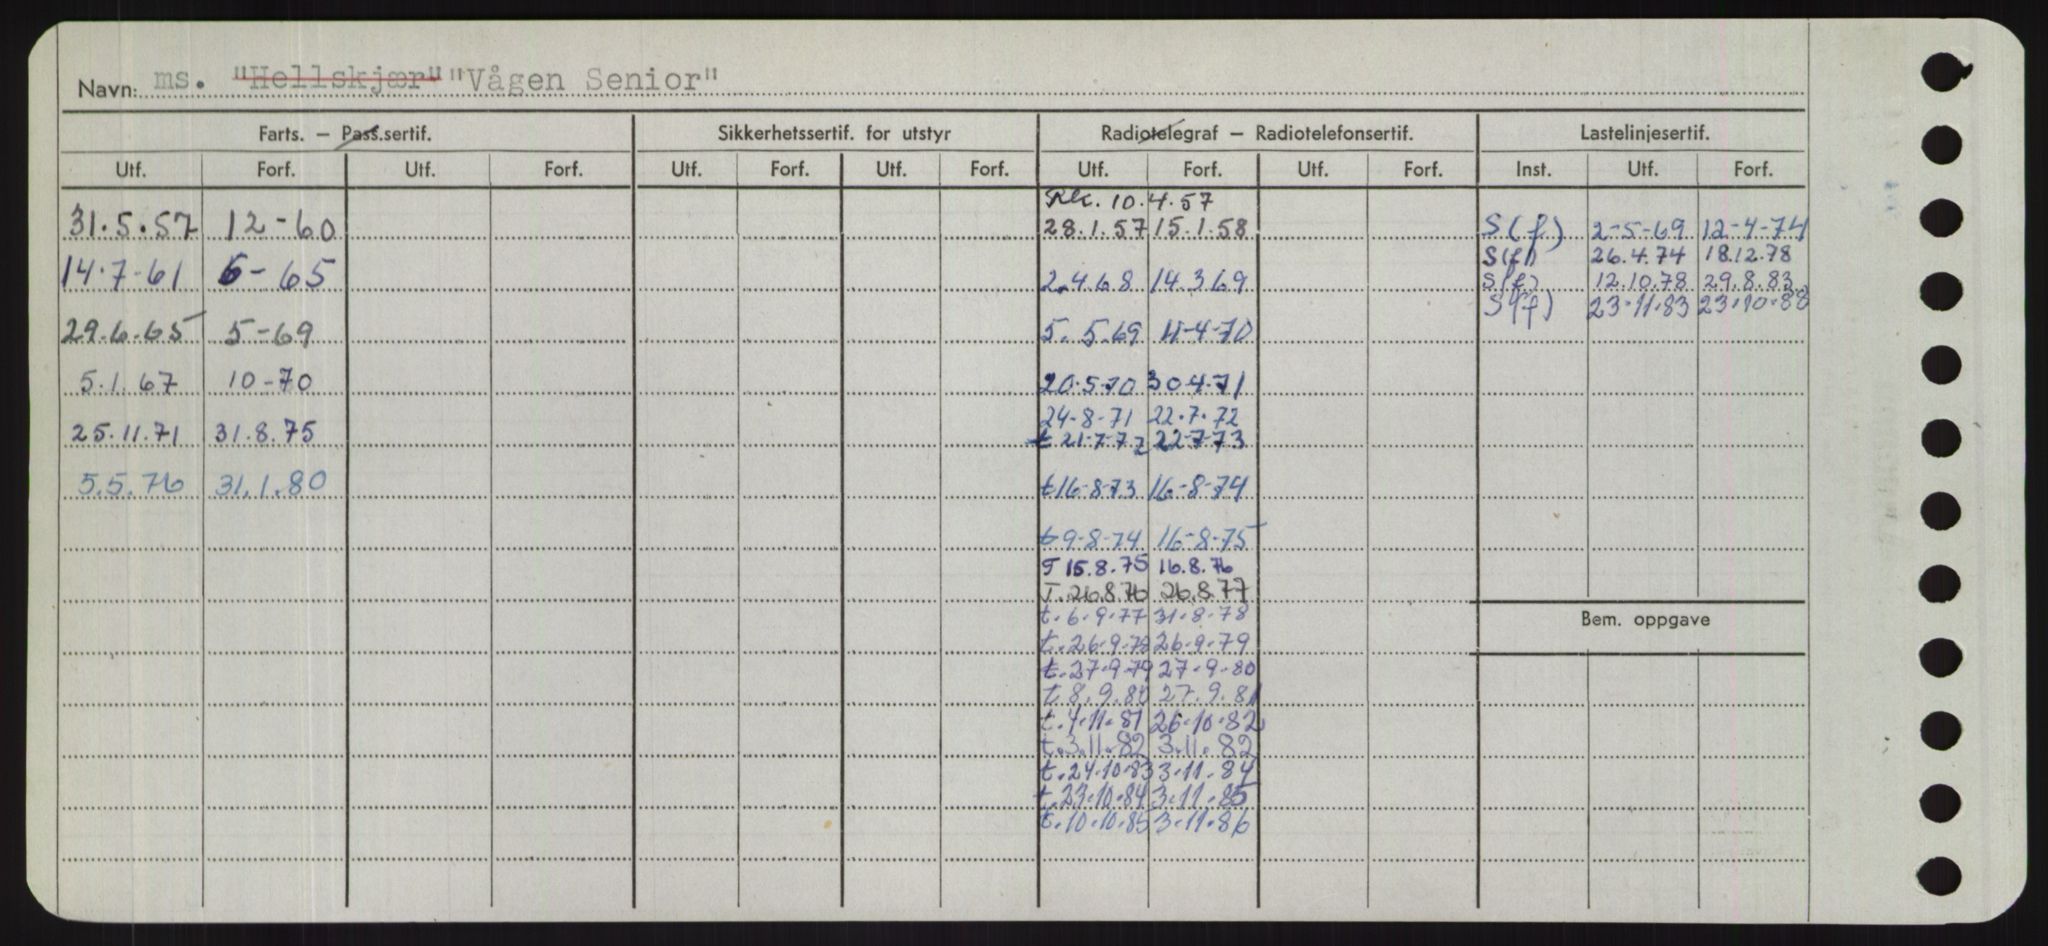 Navn: ms. "Hellskjær" "Vågen Senior"
Farts. — Pass.sertif. Sikkerhetssertif. for utstyr Radiotelegraf — Radiotelefonsertif. Lastelinjesertif.
Utf. Forf. Utf. Forf. Utf. Forf. Utf. Forf. Utf. Forf. Utf. Forf. Inst. Utf. Forf.
Rk. 10.4.57
31.5.57 12-60 28.1.57 15.1.58 S(f) 2-5-69 12-4-74
S(f) 26.4.74 18.12.78
14.7-61 6-65 2.4.68 14.3.69 S(f) 12.10.78 29.8.83
S(f) 23.11.83 23.10.88
29.6.65 5-69 5.5.69 11-4-70
5.1.67 10-70 20.5-70 30.4.71
24-8-71 22.7.72
25.11.71 31.8.75 t 21-7-72 22-7-73
5.5.76 31.1.80 t 16-8-73 16-8-74
t 9-8-74 16-8-75
T 15.8.75 16.8.76
T. 26.8.76 26.8.77
t. 6.9.77 31.8.78
Bem. oppgave
t. 26.9.78 26.9.79
t. 27.9.79 27.9.80
t 8.9.80 27.9.81
t. 4.11.81 26.10.82
t. 3.11.82 3.11.82
t. 24.10.83 3.11.84
t. 23.10.84 3.11.85
t. 10.10.85 3.11.86